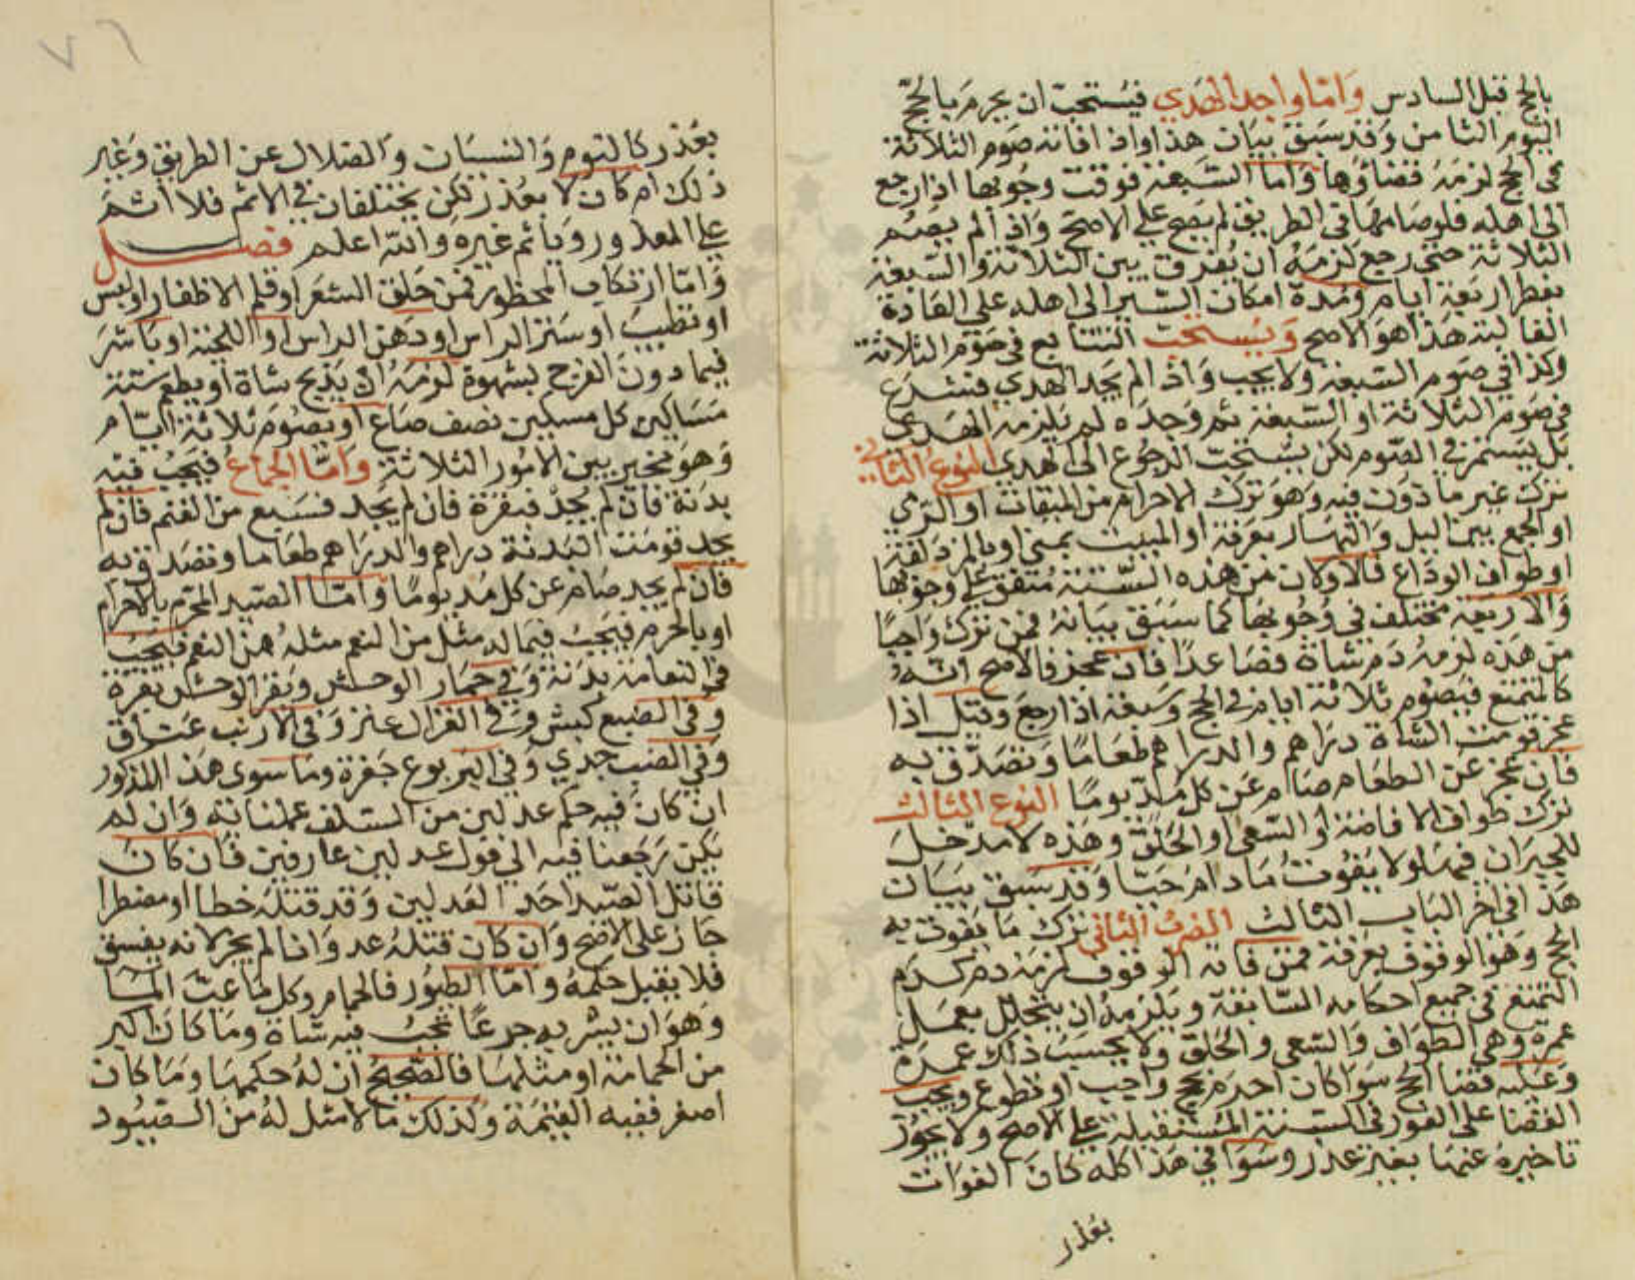 بالحج قبل السادس وَامّا واجد الهَدي فيُستحبّ ان يحرمَ بالحجّ
اليَوم الثامن وَقد سَبَقَ بيَان هذا واذا فاته صَوم الثلاثة
في الحج لزمَهُ قضاؤها وَاما السّبعَة فوقت وجُوبها اذا رجع
الى اهله فلو صَامها في الطريق لم يَصح على الاصَحّ وَاذا لم يصُم
الثلاثة حتى رجع لزمَهُ ان يُفرق بين الثلاثة وَالسّبعَة
بفطر اربعَة ايام وَمُدة امكان السّير الى اهله على العَادة
الغالبة هَذا هوَ الاصح وَيُستحبّ التتابع في صَوم الثلاثة
وكذا في صَوم السّبعَة ولا يجب وَاذا لم يجد الهدي فشرَع
في صَوم الثلاثة او السّبعَة ثم وَجدَه لم يَلزمه الهَدي
بَل يستمر في الصّوم لكن يُستحب الرجُوع الى الهدي النوع الثاني
ترك غير ما ذوَن فيه وَهوَ ترك الاحرام من الميقات او الرّمي
او الجمع بين الليل وَالنهَار بعَرفة او المبيت بمنى او بالمزدَلفة
او طواف الودَاع فالاولان من هذه السّتة مُتفق عَلى وجُوبها
وَالاربعَة مختلف في وُجُوبها كما سَبَق بيَانهُ فمن ترك وَاجبًا
من هَذه لزمهُ دَم شاة فصَاعدًا فان عجز فالاصَح انّهُ
كالمتمتع فيَصُوم ثلاثة ايام في الحج وَسَبعَة اذا رجعَ وقيل اذا
عجز قومت الشاة درَاهم وَالدرَاهم طعَامًا وَتصَدّق به
فان عجز عن الطعَام صَام عَن كل مُدّ يومًا النوع الثالث
ترك طواف الافاضة او السّعي او الحَلق وَهَذه لا مدخلَ
للجبران فيهَا ولا يَفُوت مَا دامَ حَيّا وَقد سَبق بيَان
هَذا في اخر البَاب الثالث الضرب الثاني ترك مَا يَفوت به
الحج وَهوَ الوقوف بعرفة فمن فاته الوقوف لزمَهُ دم كدَم
التمتع في جميع احكامه السّابقة وَيَلزمهُ ان يتحلل بعمَل
عمرة وهي الطواف وَالسّعي وَالحَلق وَلا يحسَبُ ذلك عمرَة
وَعَليه قضا الحج سَوَا كان احرم بحج وَاجب او تطوع وَيجب
القضا على الفور في السنة المستقبلة على الاصح ولا يجوُز
تاخيرهُ عنهَا بغير عذر وسَوَا في هَذا كله كان الفوَات
بعُذر
٧٦
بعُذر كالنوم وَالنسيَان وَالضلال عن الطريق وَغَير
ذلك ام كان لا بعُذر لكن يختلفان في الاثم فلا اثمَ
على المعذور وَيَأثم غيره وَالله اعلم فصل
وَامّا ارتكاب المحظور فمن حَلق الشعَر او قلم الاظفار او لبس
او تطيبَ او سَتر الراس او دَهن الراس او اللحية او باشرَ
فيما دون الفرج بشهوة لزمَهُ ان يذبح شاة او يطعم ستة
مَسَاكين كل مسكين نصف صَاع او يصُومَ ثلاثة ايّام
وَهوَ مخير بين الامُور الثلاثة وَامّا الجماعُ فيَجبُ فيه
بدَنة فان لم يَجدْ فبقرة فان لم يجد فسَبع من الغَنم فان لم
يجد قومَت البَدنة دراهم وَالدرَاهم طعَاما وتصَدق به
فان لم يجد صَام عن كل مُد يومًا وَامّا الصَيد المحرّم بالاحرام
او بالحرم فيَجبُ فيمَا لهُ مثل من النعم مثلهُ من النعم فيجبُ
في النعَامَة بدَنة وَفي حمَار الوحش وَبقر الوحش بقرة
وَفي الضبع كبش وَفي الغزال عنز وَفي الارنب عنَاق
وَفي الضب جدي وَفي اليَربوع جَفرة ومَا سوى هَذا المذكور
ان كان فيه حكم عدلين من السّلف عملنا به وَان لم
يكن رَجعنا فيه الى قول عدلين عارفين فان كانَ
قاتل الصَيد احَد العَدلين وَقد قتلهُ خطا او مضطرا
جَاز على الاصَح وَان كان قتلهُ عدوانا لم يجز لانه يفسق
فلا يقبل حكمُهُ وَامّا الطيُور فالحمام وكل مَا عَبّ المَا
وَهوَ ان يشربه جرعًا تجبُ فيه شاة وَمَا كان اكبر
من الحمامَة او مثلهَا فالصّحيح ان لهُ حكمهَا وَمَا كان
اصغر ففيه القيمَة وَكذلك مَا لا مثل لهُ من الصّيُود